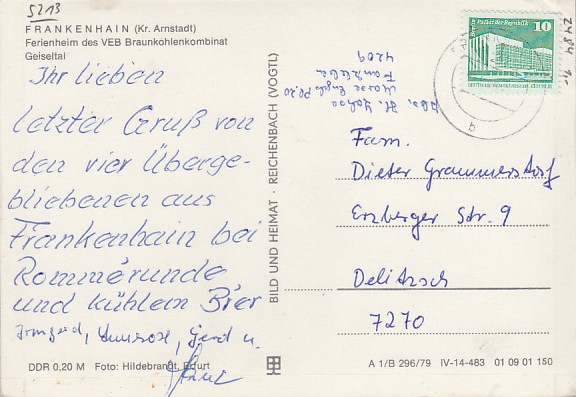 5213
FRANKENHAIN (Kr. Arnstadt)
Ferienheim des VEB Braunkohlenkombinat
Geiseltal
Ihr lieben
letzter Gruß von
den vier Überge-
bliebenen aus
Frankenhain bei
Rommérunde
und kühlem Bier
Irmgard, Annerose, Gerd u.
DDR 0,20 M Foto: Hildebrandt, Erfurt
BILD UND HEIMAT · REICHENBACH (VOGTL)
Abs. H.
Frankleben
4209
Berlin Palast der Republik
10
DEUTSCHE DEMOKRATISCHE REPUBLIK
Fam.
Dieter Grammersdorf
Erzberger Str. 9
Delitzsch
7270
A 1/B 296/79 IV-14-483 01 09 01 150